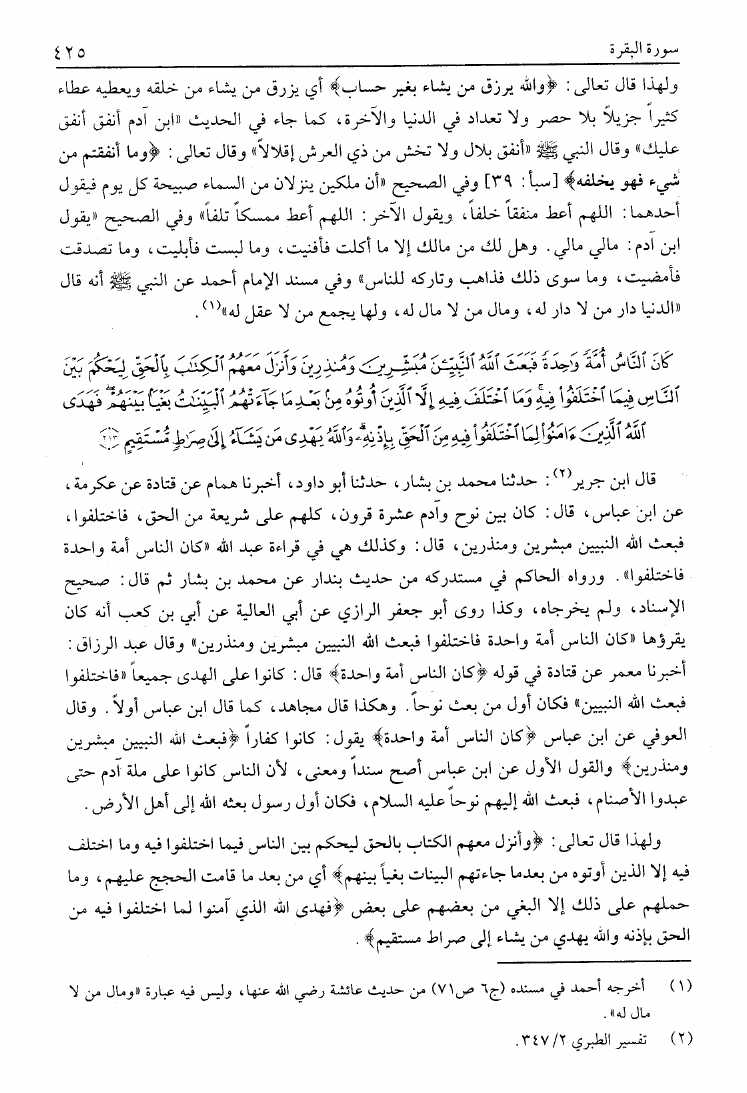 سورة البقرة ٤٢٥
ولهذا قال تعالى: ﴿والله يرزق من يشاء بغير حساب﴾ أي يزرق من يشاء من خلقه ويعطيه عطاء
كثيراً جزيلاً بلا حصر ولا تعداد في الدنيا والآخرة، كما جاء في الحديث «ابن آدم أنفق أنفق
عليك» وقال النبي ﷺ «أنفق بلال ولا تخش من ذي العرش إقلالاً» وقال تعالى: ﴿وما أنفقتم من
شيء فهو يخلفه﴾ [سبأ: ٣٩] وفي الصحيح «أن ملكين ينزلان من السماء صبيحة كل يوم فيقول
أحدهما: اللهم أعط منفقاً خلفاً، ويقول الآخر: اللهم أعط ممسكاً تلفاً» وفي الصحيح «يقول
ابن آدم: مالي مالي. وهل لك من مالك إلا ما أكلت فأفنيت، وما لبست فأبليت، وما تصدقت
فأمضيت، وما سوى ذلك فذاهب وتاركه للناس» وفي مسند الإمام أحمد عن النبي ﷺ أنه قال
«الدنيا دار من لا دار له، ومال من لا مال له، ولها يجمع من لا عقل له»(١).
كَانَ ٱلنَّاسُ أُمَّةً وَٰحِدَةً فَبَعَثَ ٱللَّهُ ٱلنَّبِيِّـۧنَ مُبَشِّرِينَ وَمُنذِرِينَ وَأَنزَلَ مَعَهُمُ ٱلْكِتَٰبَ بِٱلْحَقِّ لِيَحْكُمَ بَيْنَ
ٱلنَّاسِ فِيمَا ٱخْتَلَفُوا۟ فِيهِ ۚ وَمَا ٱخْتَلَفَ فِيهِ إِلَّا ٱلَّذِينَ أُوتُوهُ مِنۢ بَعْدِ مَا جَآءَتْهُمُ ٱلْبَيِّنَٰتُ بَغْيًۢا بَيْنَهُمْ ۖ فَهَدَى
ٱللَّهُ ٱلَّذِينَ ءَامَنُوا۟ لِمَا ٱخْتَلَفُوا۟ فِيهِ مِنَ ٱلْحَقِّ بِإِذْنِهِۦ ۗ وَٱللَّهُ يَهْدِى مَن يَشَآءُ إِلَىٰ صِرَٰطٍ مُّسْتَقِيمٍ ﴿٢١٣﴾
قال ابن جرير(٢): حدثنا محمد بن بشار، حدثنا أبو داود، أخبرنا همام عن قتادة عن عكرمة،
عن ابن عباس، قال: كان بين نوح وآدم عشرة قرون، كلهم على شريعة من الحق، فاختلفوا،
فبعث الله النبيين مبشرين ومنذرين، قال: وكذلك هي في قراءة عبد الله «كان الناس أمة واحدة
فاختلفوا». ورواه الحاكم في مستدركه من حديث بندار عن محمد بن بشار ثم قال: صحيح
الإسناد، ولم يخرجاه، وكذا روى أبو جعفر الرازي عن أبي العالية عن أبي بن كعب أنه كان
يقرؤها «كان الناس أمة واحدة فاختلفوا فبعث الله النبيين مبشرين ومنذرين» وقال عبد الرزاق:
أخبرنا معمر عن قتادة في قوله ﴿كان الناس أمة واحدة﴾ قال: كانوا على الهدى جميعاً «فاختلفوا
فبعث الله النبيين» فكان أول من بعث نوحاً. وهكذا قال مجاهد، كما قال ابن عباس أولاً. وقال
العوفي عن ابن عباس ﴿كان الناس أمة واحدة﴾ يقول: كانوا كفاراً ﴿فبعث الله النبيين مبشرين
ومنذرين﴾ والقول الأول عن ابن عباس أصح سنداً ومعنى، لأن الناس كانوا على ملة آدم حتى
عبدوا الأصنام، فبعث الله إليهم نوحاً عليه السلام، فكان أول رسول بعثه الله إلى أهل الأرض.
ولهذا قال تعالى: ﴿وأنزل معهم الكتاب بالحق ليحكم بين الناس فيما اختلفوا فيه وما اختلف
فيه إلا الذين أوتوه من بعدما جاءتهم البينات بغياً بينهم﴾ أي من بعد ما قامت الحجج عليهم، وما
حملهم على ذلك إلا البغي من بعضهم على بعض ﴿فهدى الله الذي آمنوا لما اختلفوا فيه من
الحق بإذنه والله يهدي من يشاء إلى صراط مستقيم﴾.
(١) أخرجه أحمد في مسنده (ج٦ ص٧١) من حديث عائشة رضي الله عنها، وليس فيه عبارة «ومال من لا
مال له».
(٢) تفسير الطبري ٣٤٧/٢.